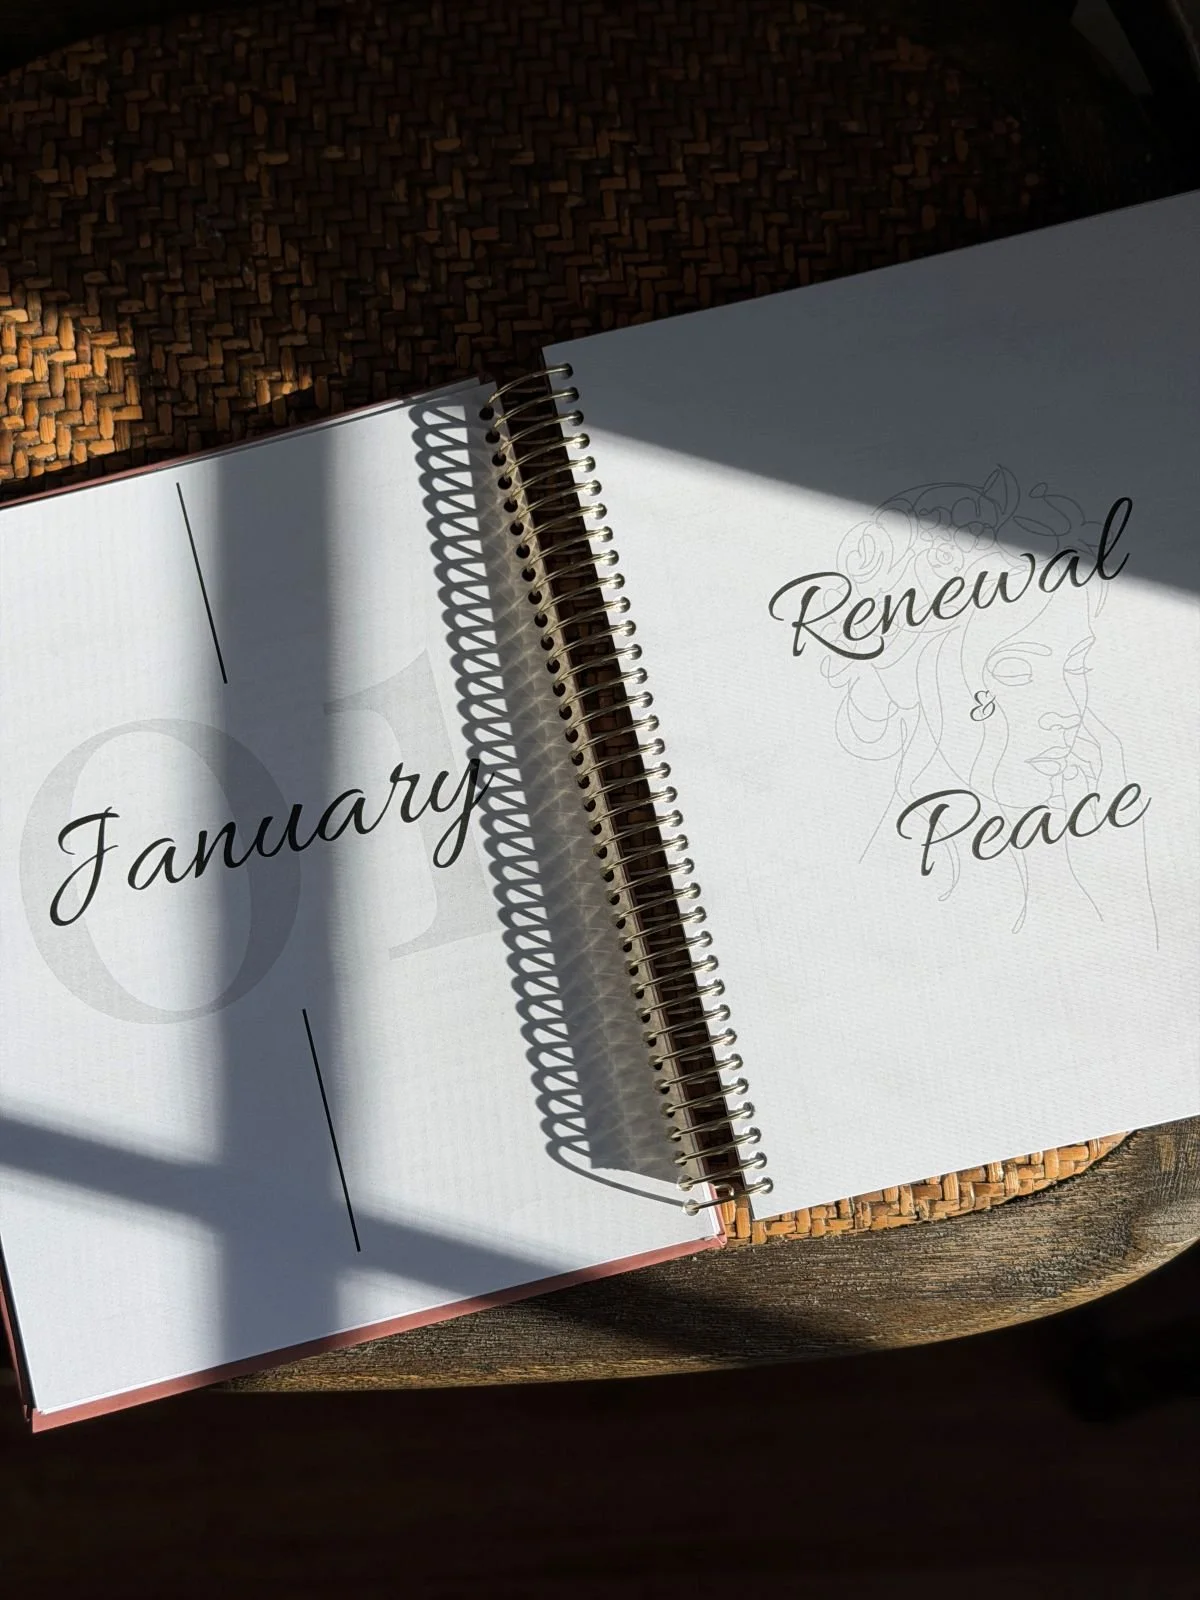 01
January
Renewal
&
Peace